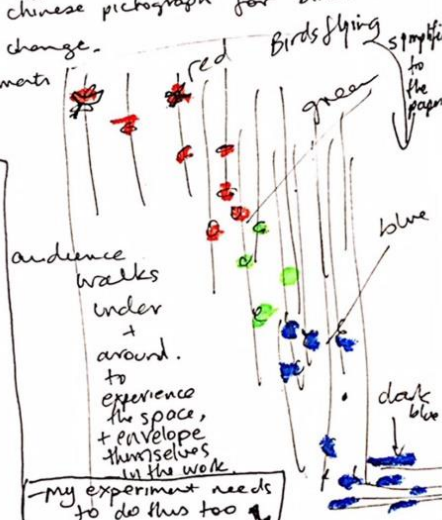 chinese pictograph for
change.
red
Birds flying
green
to
the
blue
audience
walks
under
+
around.
to
experience
the space,
+ envelope
themselves
in the work.
dark
blue
-my experiment needs
to do this too